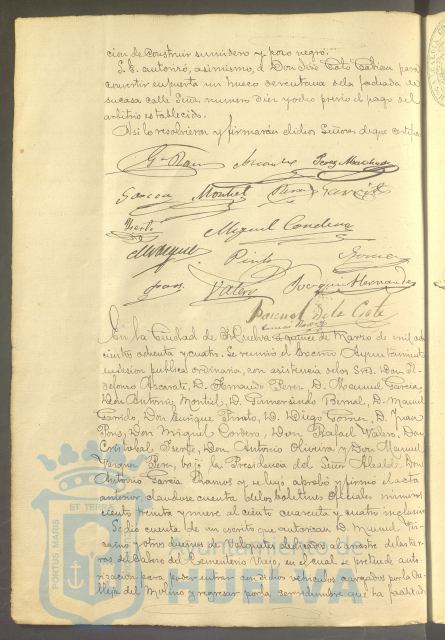 cion de construir sumidero y pozo negro.
S. S. autorizó, asimismo, a Don José Coto para
convertir en puerta un hueco de ventana de la fachada de
su casa calle Señas numero diez y ocho previo el pago del
arbitrio establecido.
Asi lo resolvieron y firmarán dichos Señores de que certifico
Perez Machado
Garcia Montiel Bernal Garrido
Miguel Cordero
Pinto Gomez
Pons Valero Joaquin Hernandez
Manuel de la Corte
En la Ciudad de Huelva a quince de Marzo de mil ocho
cientos ochenta y cuatro. Se reunió el Excmo Ayuntamiento
en sesion publica ordinaria, con asistencia de los Sres. Don Il-
defonso Azcarate, D. Fernando Perez, D. Manuel Garcia,
Don Antonio Montiel, D. Gumersindo Bernal, D. Manuel
Garrido, Don Enrique Pinto, D. Diego Gomez, D. Juan
Pons, Don Miguel Cordero, Don Rafael Valero, Don
Cristobal Don Antonio Oliveira y Don Manuel
Vazquez Perez, bajo la Presidencia del Señor Alcalde Don
Antonio Garcia Ramos y se leyó aprobó y firmó el acta
anterior, dandose cuenta de los Boletines Oficiales numeros
ciento treinta y nueve al ciento cuarenta y cuatro inclusive
Se dió cuenta de un escrito que autorizan D. Manuel
y otros dueños de dedicados al arrastre de las tier-
ros del Cabezo del Cementerio Viejo, en el cual se pretende auto-
rizacion para poder entrar con dichos vehiculos cargados por la Ca-
lleja del Molino y regresar por la servidumbre que ha facilitado
PORTUS MARIS ET TERRE
Ayuntamiento de
HUELVA